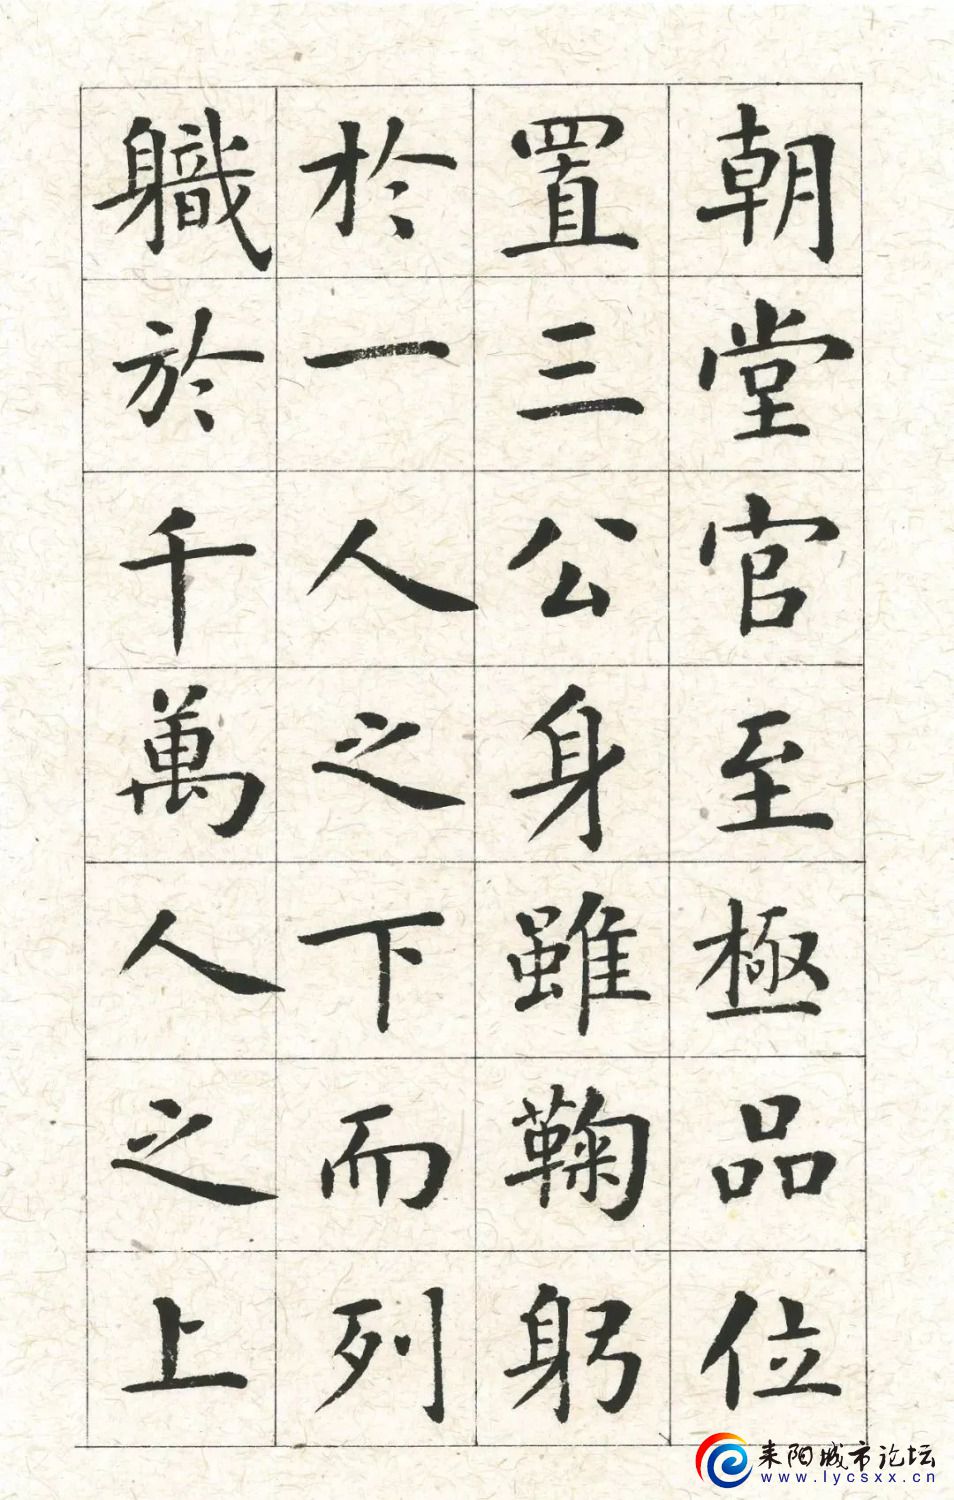 朝堂官至極品位
置三公身雖鞠躬
於一人之下而列
軄於千萬人之上
耒阳城市论坛
www.lycsxx.cn